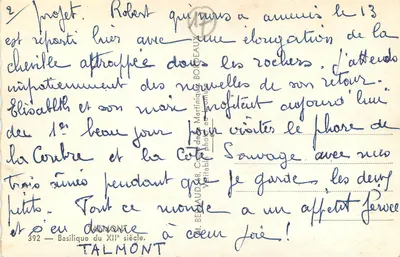 2/ projet. Robert qui nous a amenés le 13
est reparti hier avec une élongation de la
cheville attrapée dans les rochers. J'attends
impatiemment des nouvelles de son retour.
Elisabeth et son mari profitent aujourd'hui
du 1er beau jour pour visiter le phare de
la Coubre et la Côte Sauvage avec nos
trois aînés pendant que je garde les deux
petits. Tout ce monde a un appétit féroce
et s'en donne à coeur joie!
392 — Basilique du XIIe siècle.
TALMONT